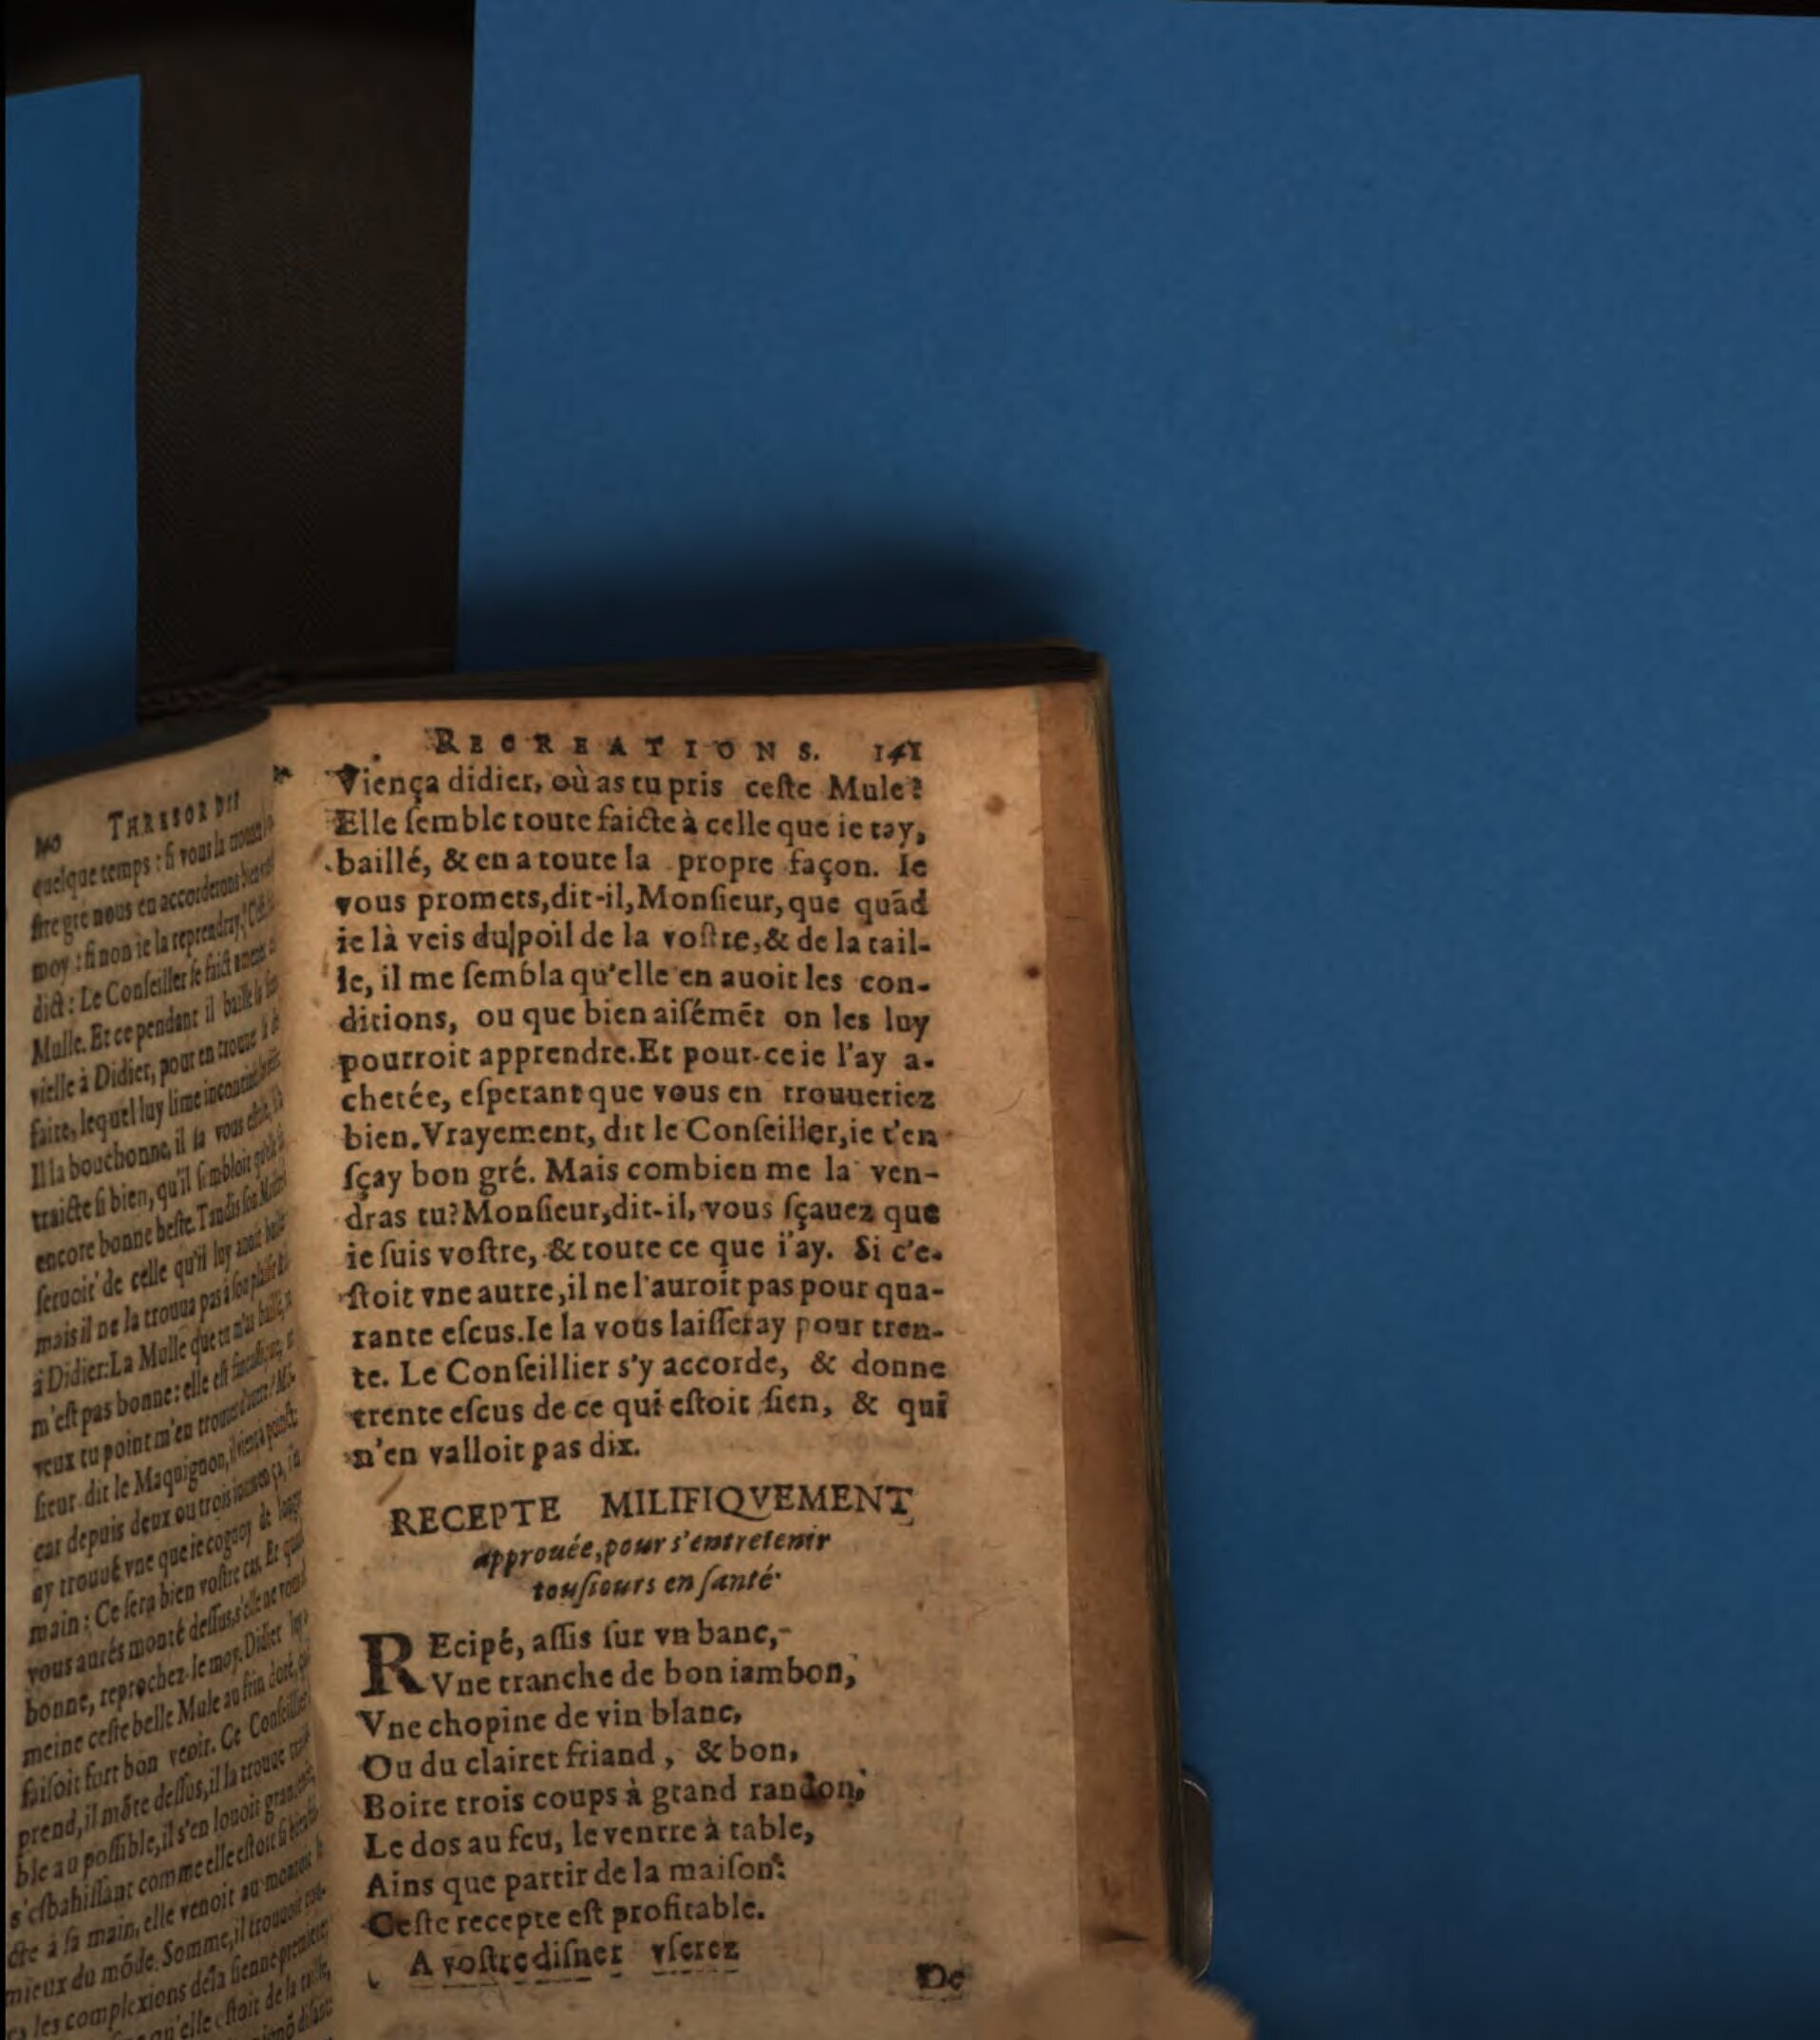 140 THRESOR DES
quelque temps : si vous la
stre gré nous en accorderons bien
moy : si non ie la reprendray.
dict : Le Conseiller se faict
Mulle. Et ce pendant il baille
vielle à Didier, pour en trouuer
faire, lequel luy lime incontinent
Il la bouchonne, il la vous
traicte si bien, qu'il sembloit
encore bonne beste. Tandis son
seruoit de celle qu'il luy auoit baillé
mais il ne la trouua pas à son plaisir
à Didier: La Mulle que tu m'as baillé,
m'est pas bonne : elle est
veux tu point m'en trouuer d'autre? Mō-
sieur dit le Maquignon, il vient à
car depuis deux ou trois iours en ça, i'en
ay trouué vne que ie cognoy de longue
main : Ce sera bien vostre cas. Et quand
vous aurés monté dessus, s'elle ne vous
bonne, reprochez-le moy. Didier luy
meine ceste belle Mule au frin doré, qui
faisoit fort bon veoir. Ce Conseiller
prend, il mōte dessus, il la trouue
ble au possible, il s'en louoit
s'esbahissant comme elle estoit si bien
cte à sa main, elle venoit au montoir
mieux du mōde. Somme, il trouuoit
les complexions de la sienne premiere,
qu'elle estoit de la taille,
disant
RECREATIONS. 141
Viença didier, où as tu pris ceste Mule?
Elle semble toute faicte à celle que ie tay,
baillé, & en a toute la propre façon. Ie
vous promets, dit-il, Monsieur, que quād
ie là veis du|poil de la vostre, & de la tail-
le, il me sembla qu'elle en auoit les con-
ditions, ou que bien aisémēt on les luy
pourroit apprendre. Et pour-ce ie l'ay a-
chetée, esperant que vous en trouueriez
bien. Vrayement, dit le Conseillier, ie t'en
sçay bon gré. Mais combien me la ven-
dras tu? Monsieur, dit-il, vous sçauez que
ie suis vostre, & toute ce que i'ay. Si c'e-
stoit vne autre, il ne l'auroit pas pour qua-
rante escus. Ie la vous laisseray pour tren-
te. Le Conseillier s'y accorde, & donne
trente escus de ce qui estoit sien, & qui
n'en valloit pas dix.
RECEPTE MILIFIQVEMENT
approuée, pour s'entretenir
tousiours en santé.
REcipé, assis sur vn banc,
Vne tranche de bon iambon,
Vne chopine de vin blanc,
Ou du clairet friand, & bon,
Boire trois coups à grand randon,
Le dos au feu, le ventre à table,
Ains que partir de la maison:
Ceste recepte est profitable.
A vostre disner vserez
De